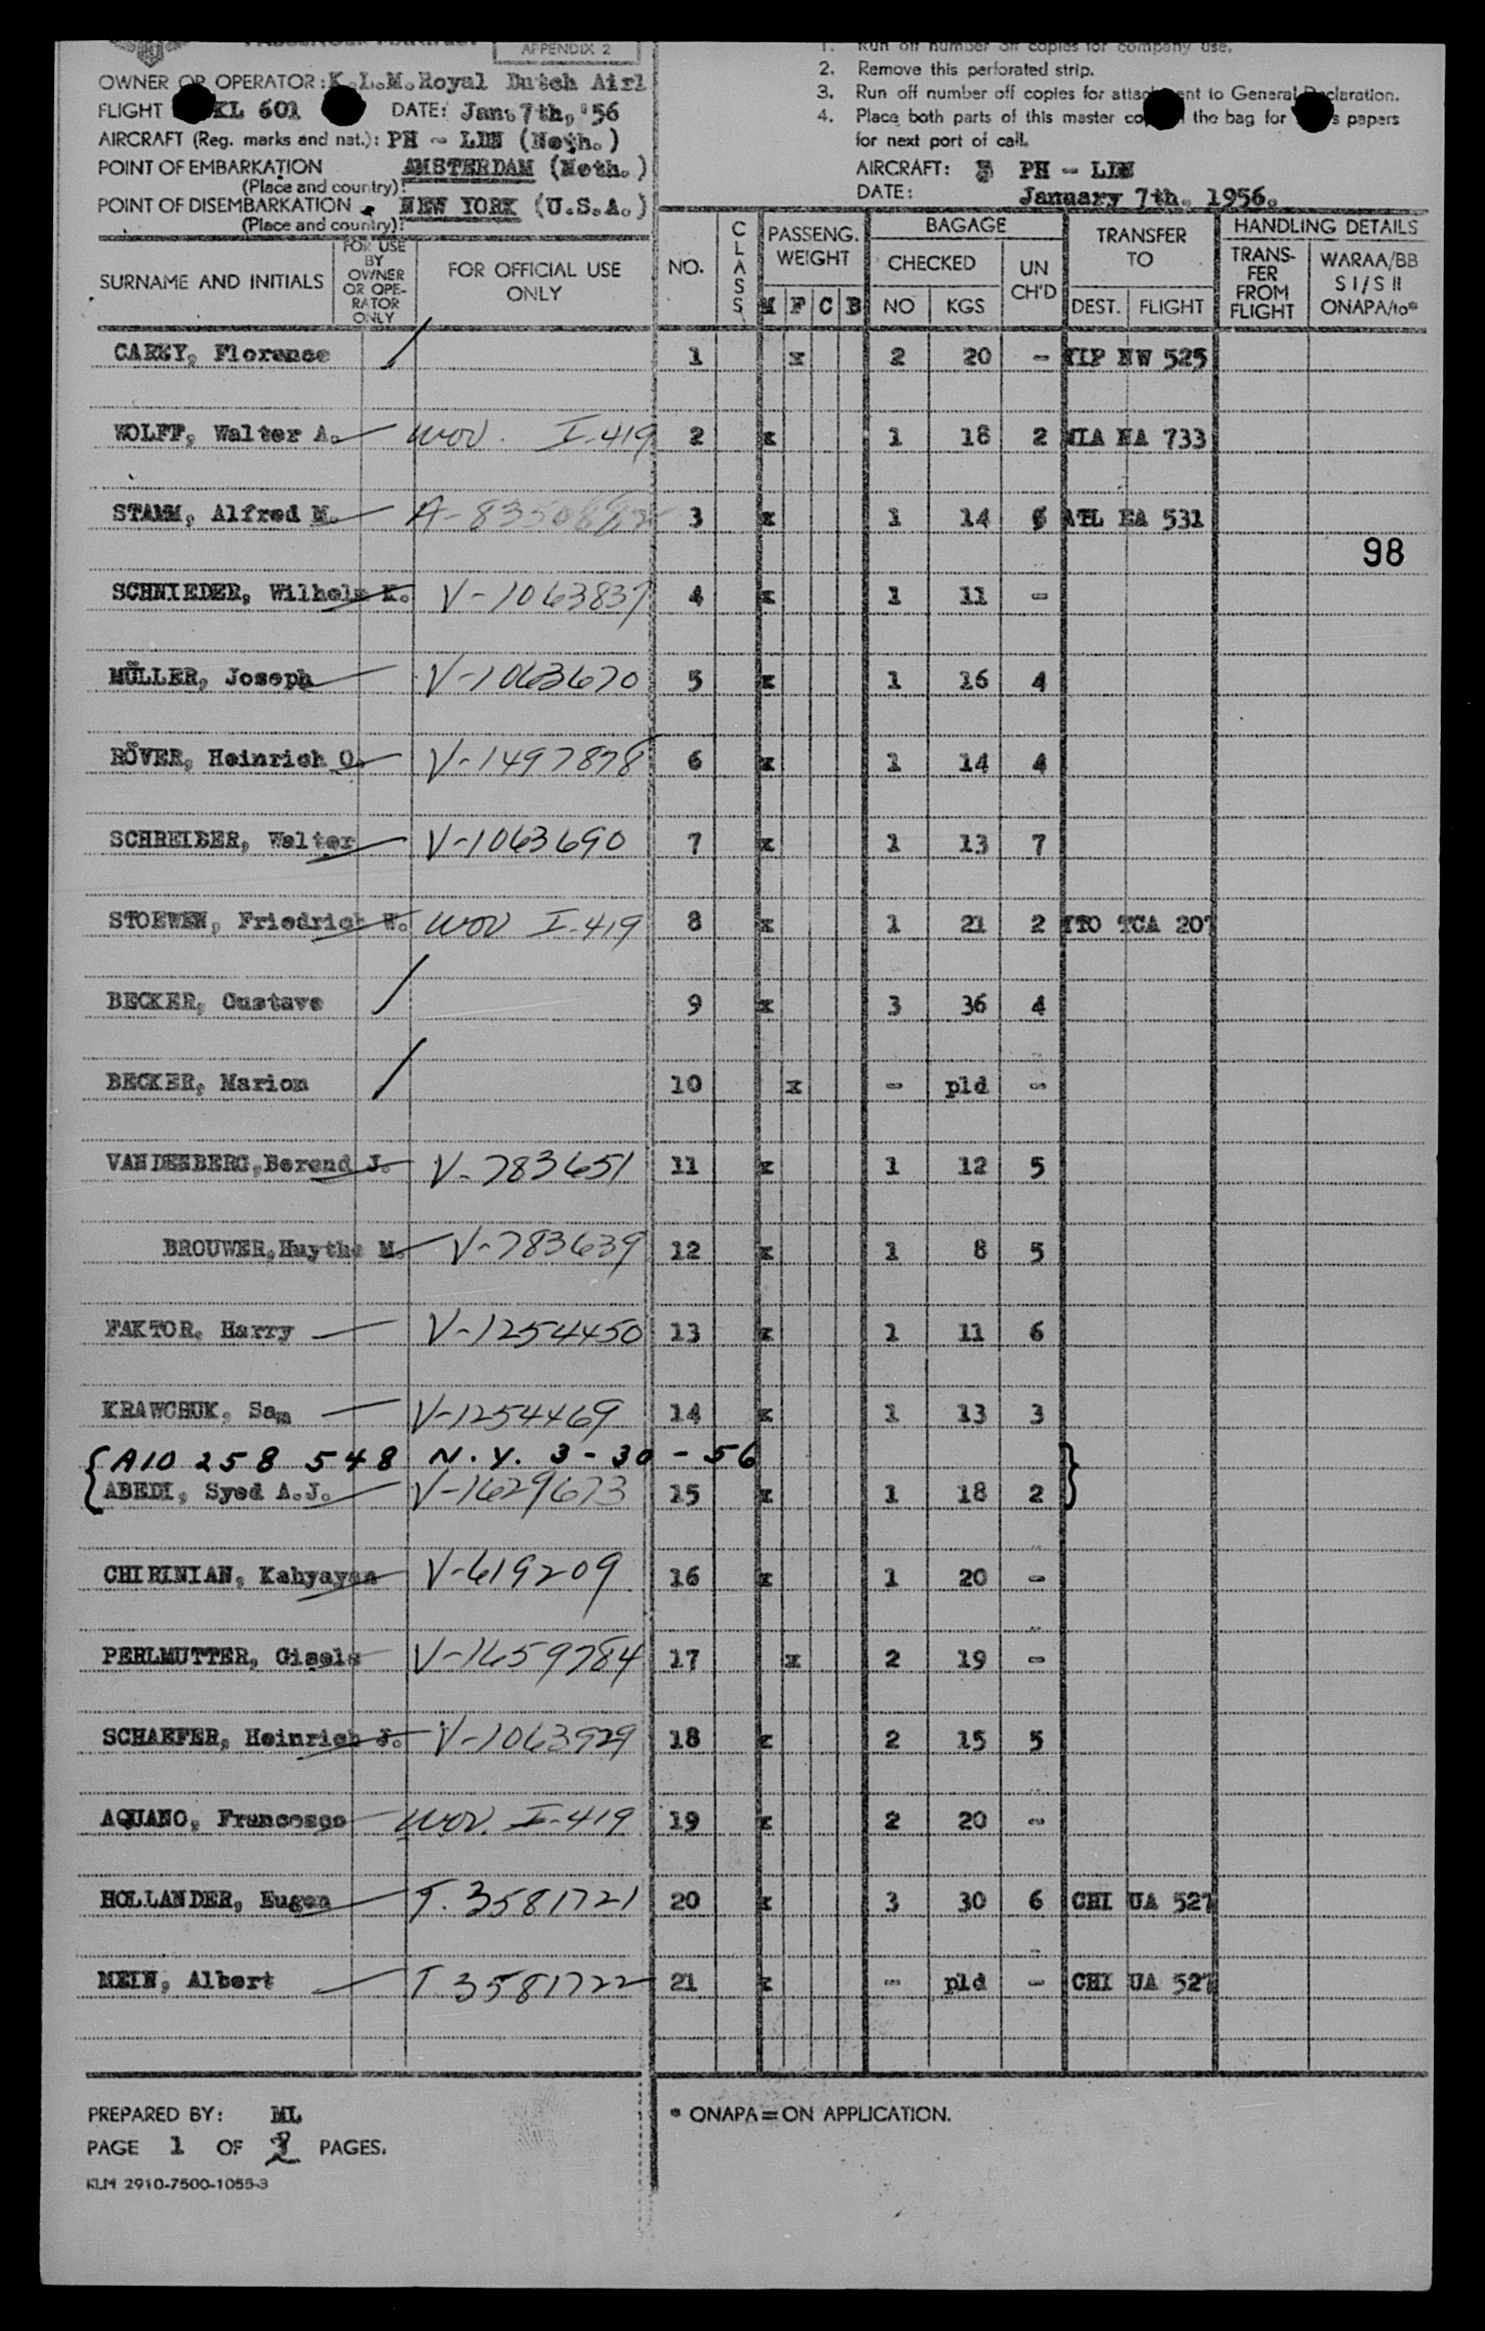 APPENDIX 2
OWNER OR OPERATOR: K.L.M. Royal Dutch Airl
FLIGHT KL 601 DATE: Jan. 7th, '56
AIRCRAFT (Reg. marks and nat.): PH - (Neth.)
POINT OF EMBARKATION AMSTERDAM (Neth.)
(Place and country):
POINT OF DISEMBARKATION NEW YORK (U.S.A.)
(Place and country):
1. Run off number off copies for company use.
2. Remove this perforated strip.
3. Run off number off copies for to General
4. Place both parts of this master the bag for papers
for next port of call.
AIRCRAFT: PH -
DATE: January 7th. 1956.
SURNAME AND INITIALS FOR USE BY OWNER OR OPE- RATOR ONLY FOR OFFICIAL USE ONLY NO. CLASS PASSENG. WEIGHT M F C B BAGAGE CHECKED NO KGS UN CH'D TRANSFER TO DEST. FLIGHT HANDLING DETAILS TRANS- FER FROM FLIGHT WARAA/BB S I / S II ONAPA/to*
CAREY, Florence / 1 x 2 20 - NW 525
WOLFF, Walter A. WOV. I-419 2 x 1 18 2 MIA NA 733
STAMM, Alfred M. 3 x 1 14 ATL EA 531
98
SCHNIEDER, Wilhelm K. V-1063837 4 x 1 11 -
MÜLLER, Joseph V-1063670 5 x 1 16 4
RÖVER, Heinrich O. V-1497878 6 x 1 14 4
SCHREIBER, Walter V-1063690 7 x 1 13 7
STOEWEN, Friedrich W. WOV I-419 8 x 1 21 2 YTO TCA 207
BECKER, Gustave / 9 x 3 36 4
BECKER, Marion / 10 x - pld -
VANDENBERG, Berend J. V-783651 11 x 1 12 5
BROUWER, Huythe M. V-783639 12 x 1 8 5
FAKTOR, Harry V-1254450 13 x 1 11 6
KRAWCHUK, Sam V-1254469 14 x 1 13 3
A10 258 548 N.Y. 3-30-56
ABEDI, Syed A.J. V-1629673 15 x 1 18 2
CHIRINIAN, Kahyayan V-619209 16 x 1 20 -
PERLMUTTER, Gisela V-1659784 17 x 2 19 -
SCHAEFER, Heinrich J. V-1063929 18 x 2 15 5
AQUANO, Francesco WOV. I-419 19 x 2 20 -
HOLLANDER, Eugen T. 3581721 20 x 3 30 6 CHI UA 527
MEIN, Albert T 3581722 21 x - pld - CHI UA 527
PREPARED BY: ML
PAGE 1 OF 2 PAGES.
KLM 2910-7500-1055-3
* ONAPA = ON APPLICATION.